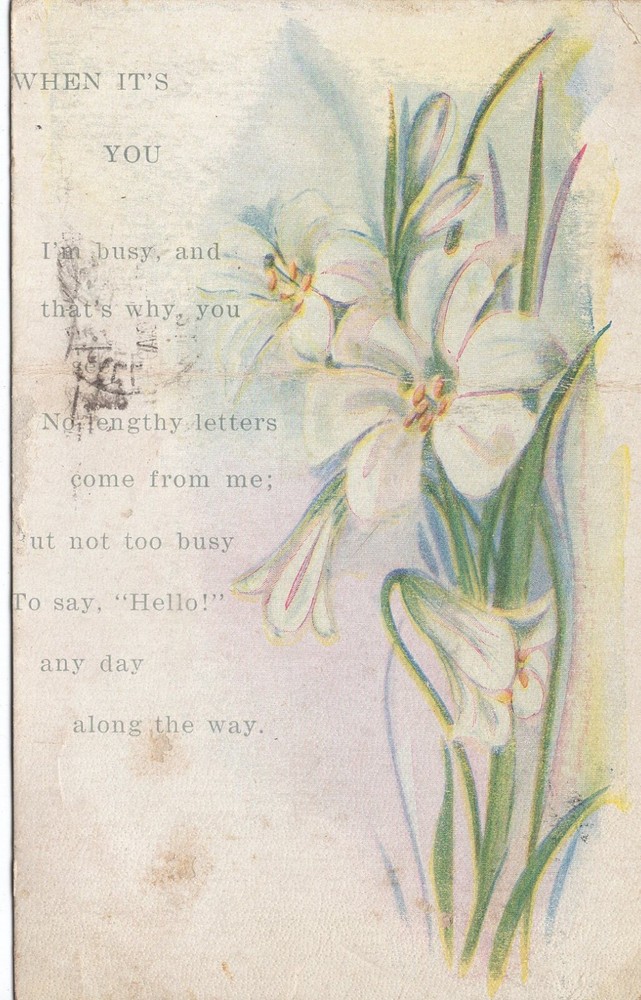 WHEN IT'S
YOU
I'm busy, and
that's why, you
No lengthy letters
come from me;
ut not too busy
To say, "Hello!"
any day
along the way.